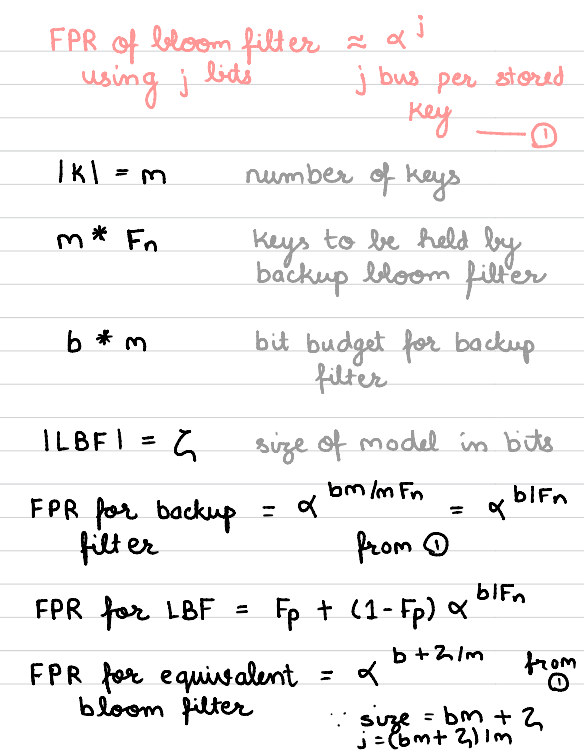 FPR of bloom filter ≈ α^j
using j bits j bus per stored
key — ①
|K| = m number of keys
m * Fn keys to be held by
backup bloom filter
b * m bit budget for backup
filter
|LBF| = ζ size of model in bits
FPR for backup = α^bm/mFn = α^b/Fn
filter from ①
FPR for LBF = Fp + (1-Fp) α^b/Fn
FPR for equivalent = α^b+ζ/m from
bloom filter ①
∵ size = bm + ζ
j=(bm+ζ)/m